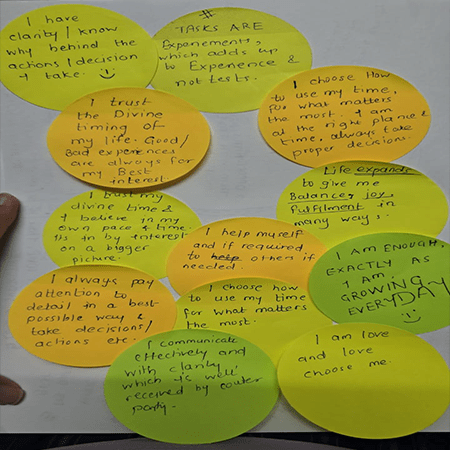 I have
clarity / know
why behind the
actions / decision
I take.
#
TASKS ARE
Experiments,
which adds up
to Experience &
not tests.
I trust
the Divine
timing of
my life. Good/
Bad experiences
are always for
my Best
interest.
I choose How
to use my time,
for what matters
the most. I am
at the right place &
time, always take
proper decisions.
I trust my
divine time &
I believe in my
own pace & time.
Its in by interest
on a bigger
picture.
Life expands
to give me
Balance, joy,
Fulfilment in
many ways.
I help myself
and if required
to help others if
needed.
I AM ENOUGH,
EXACTLY AS
I am.
GROWING
EVERYDAY
I always pay
attention to
detail in best
possible way &
take decisions/
actions etc.
I choose how
to use my time
for what matters
the most.
I communicate
effectively and
with clarity
which is well
received by
party.
I am love
and love
choose me.